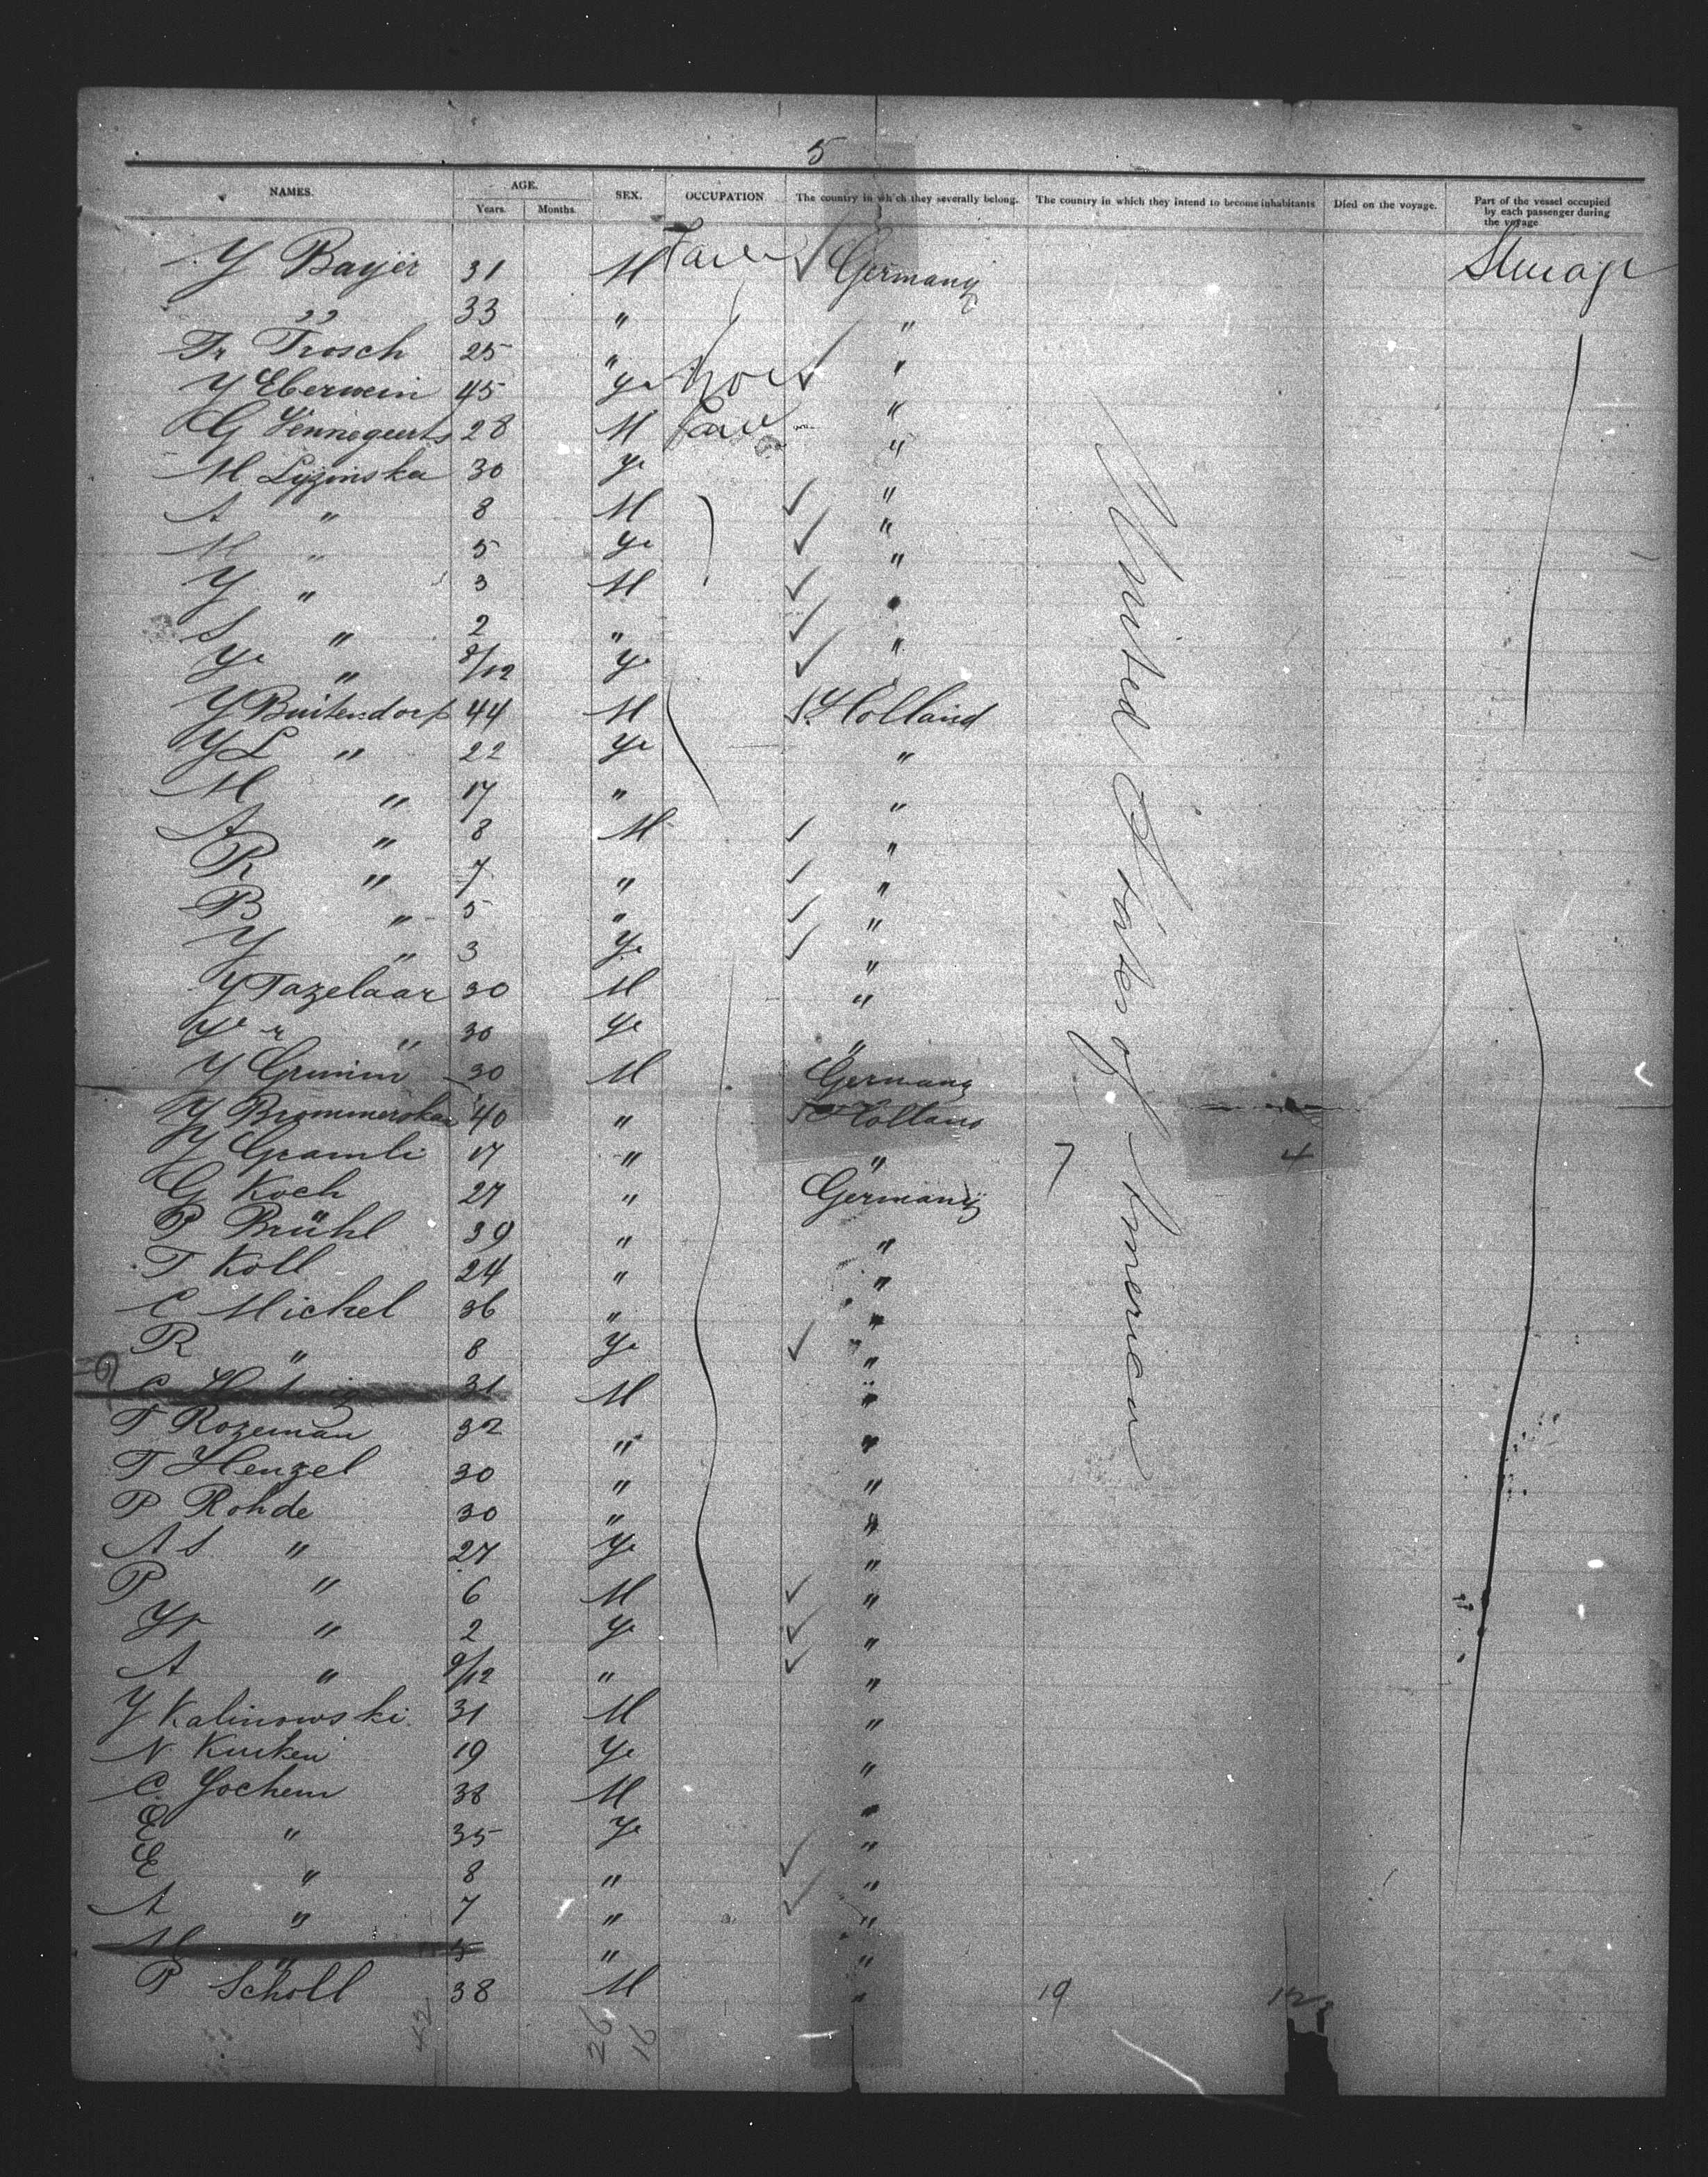 5
NAMES. AGE. SEX. OCCUPATION The country in which they severally belong. The country in which they intend to become inhabitants Died on the voyage. Part of the vessel occupied by each passenger during the voyage
Years. Months.
Y Bayer 31 M Germany
" 33 " "
Fr Trosch 25 " "
Y Eberwein 45 "
G 28 M "
M Lyzinska 30 Ye "
A " 8 M "
M " 5 Ye "
Y " 3 M "
S " 2 " "
Ye " 8/12 Ye
Y Buitendorp 44 M Holland
Y L " 22 Ye "
M " 17 " "
A " 8 M "
R " 7 " "
B " 5 " "
Y " 3 Ye "
Y Tazelaar 30 M "
" 30 Ye "
Y Grimm 30 M Germany
Y 40 " Holland
Y Gramli 17 " " 7 4
G Koch 27 " Germany
P Brühl 39 " "
T Koll 24 " "
C Michel 36 " "
R " 8 Ye "
C 31 M "
T Rozeman 32 " "
T Henzel 30 " "
P Rohde 30 " "
A S " 27 Ye "
P " 6 M "
Yr " 2 Ye "
A " 9/12 " "
Y Kalinowski 31 M "
N 19 Ye "
C. Jochem 38 M "
E " 35 Ye "
E " 8 " "
A " 7 " "
M " 5 " "
P Scholl 38 M " 19 12
42 26 16
United States of America